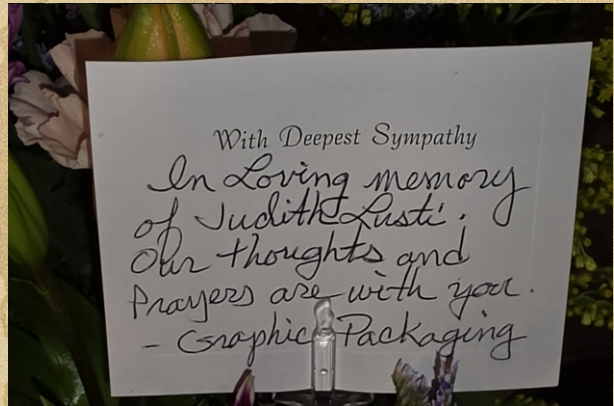 With Deepest Sympathy
In Loving memory
of Judith Lusti.
Our thoughts and
Prayers are with you.
- Graphic Packaging